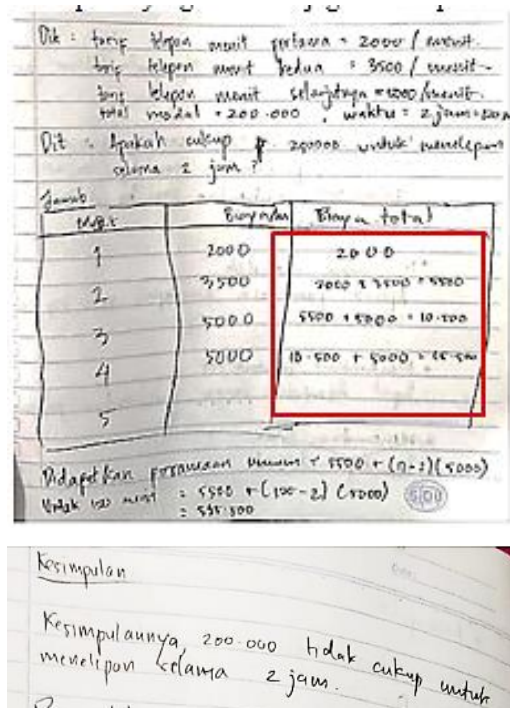 Dik : tarif telepon menit pertama = 2000 / menit.
tarif telepon menit kedua = 3500 / menit
tarif telepon menit selanjutnya = 5000/menit.
total modal = 200.000 , waktu = 2 jam =
Dit : Apakah cukup 200000 untuk menelepon
selama 2 jam ?
Jawab
Menit Biaya total
1 2000 2000
2 3,500 2000 + 3500 = 5500
3 5000 5500 + 5000 = 10.500
4 5000 10.500 + 5000 = 15.500
5
Didapatkan persamaan umum = 5500 + (n-2)(5000)
Untuk 120 menit = 5500 + (120-2) (5000)
= 595.500
Kesimpulan
Kesimpulannya, 200.000 tidak cukup untuk
menelipon selama 2 jam.